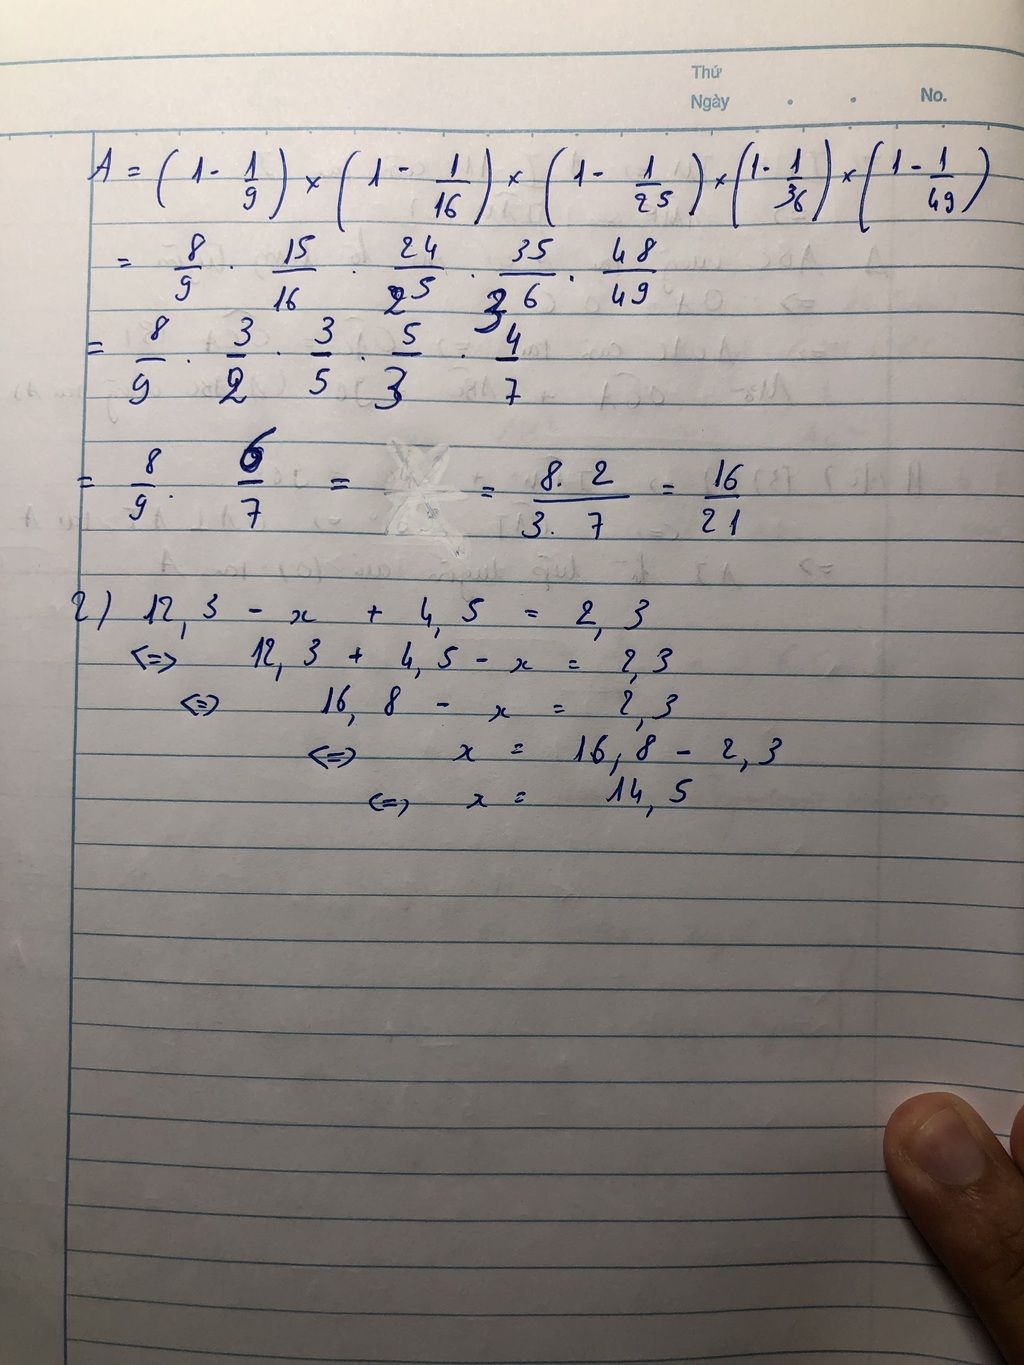 Thứ
Ngày . . No.
A = (1 - 1/9) × (1 - 1/16) × (1 - 1/25) × (1 - 1/36) × (1 - 1/49)
= 8/9 . 15/16 . 24/25 . 35/36 . 48/49
= 8/9 . 3/2 . 3/5 . 5/3 . 4/7
= 8/9 . 6/7 = = 8. 2/3. 7 = 16/21
2) 12,3 - x + 4,5 = 2,3
<=> 12,3 + 4,5 - x = 2,3
<=> 16,8 - x = 2,3
<=> x = 16,8 - 2,3
<=> x = 14,5